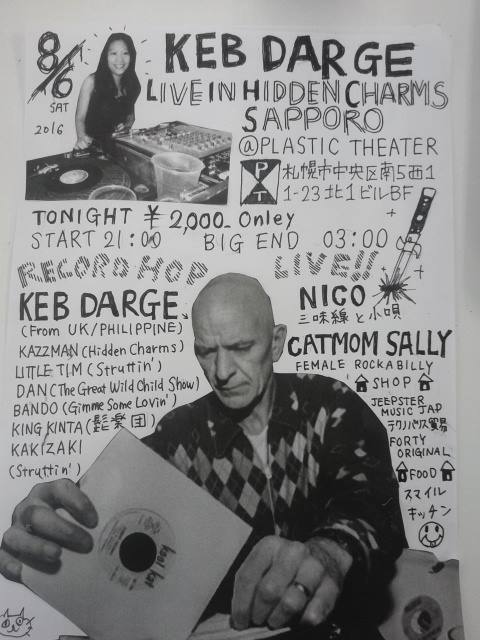 8/6
SAT
2016
KEB DARGE
LIVE IN HIDDEN CHARMS
SAPPORO
@PLASTIC THEATER
P T
札幌市中央区南5西1
1-23北1ビルBF
TONIGHT ¥2,000- Onley
START 21:00 BIG END 03:00
RECORD HOP
LIVE!!
KEB DARGE
(From UK/PHILIPPINE)
KAZZMAN (Hidden Charms)
LITTLE TIM (Struttin')
DAN (The Great Wild Child Show)
BANDO (Gimme Some Lovin')
KING KINTA (髭楽団)
KAKIZAKI
(Struttin')
NICO
三味線と小唄
CATMOM SALLY
FEMALE ROCKABILLY
SHOP
JEEPSTER
MUSIC JAP
テクノパウス貿易
FORTY
ORIGINAL
FOOD
スマイル
キッチン
kool kat